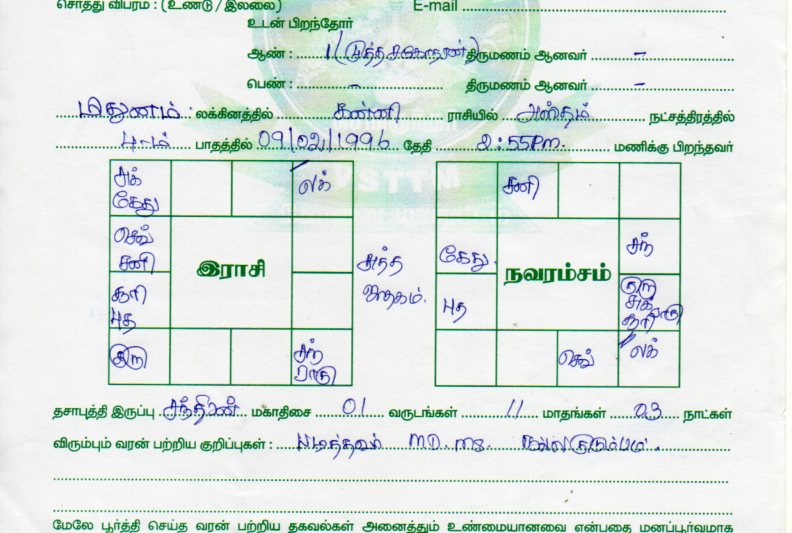 சொத்து விபரம் : (உண்டு / இல்லை) E-mail
உடன் பிறந்தோர்
ஆண் : 1 (மூத்த சகோதரன்) திருமணம் ஆனவர் –
பெண் : – திருமணம் ஆனவர் –
மிதுனம் லக்கினத்தில் கன்னி ராசியில் அஸ்தம் நட்சத்திரத்தில்
4-ம் பாதத்தில் 09/02/1996 தேதி 2:55Pm. மணிக்கு பிறந்தவர்
சுக் கேது லக் சனி
செவ் சனி இராசி சுத்த ஜாதகம். கேது. நவரம்சம் சந்
சூரி புத புத குரு சுக் சூரி ராகு
குரு சந் ராகு செவ் லக்
தசாபுத்தி இருப்பு சந்திரன் மகாதிசை 01 வருடங்கள் 11 மாதங்கள் 03 நாட்கள்
விரும்பும் வரன் பற்றிய குறிப்புகள் : MD. MS. நல்லகுடும்பம்.
மேலே பூர்த்தி செய்த வரன் பற்றிய தகவல்கள் அனைத்தும் உண்மையானவை என்பதை மனப்பூர்வமாக